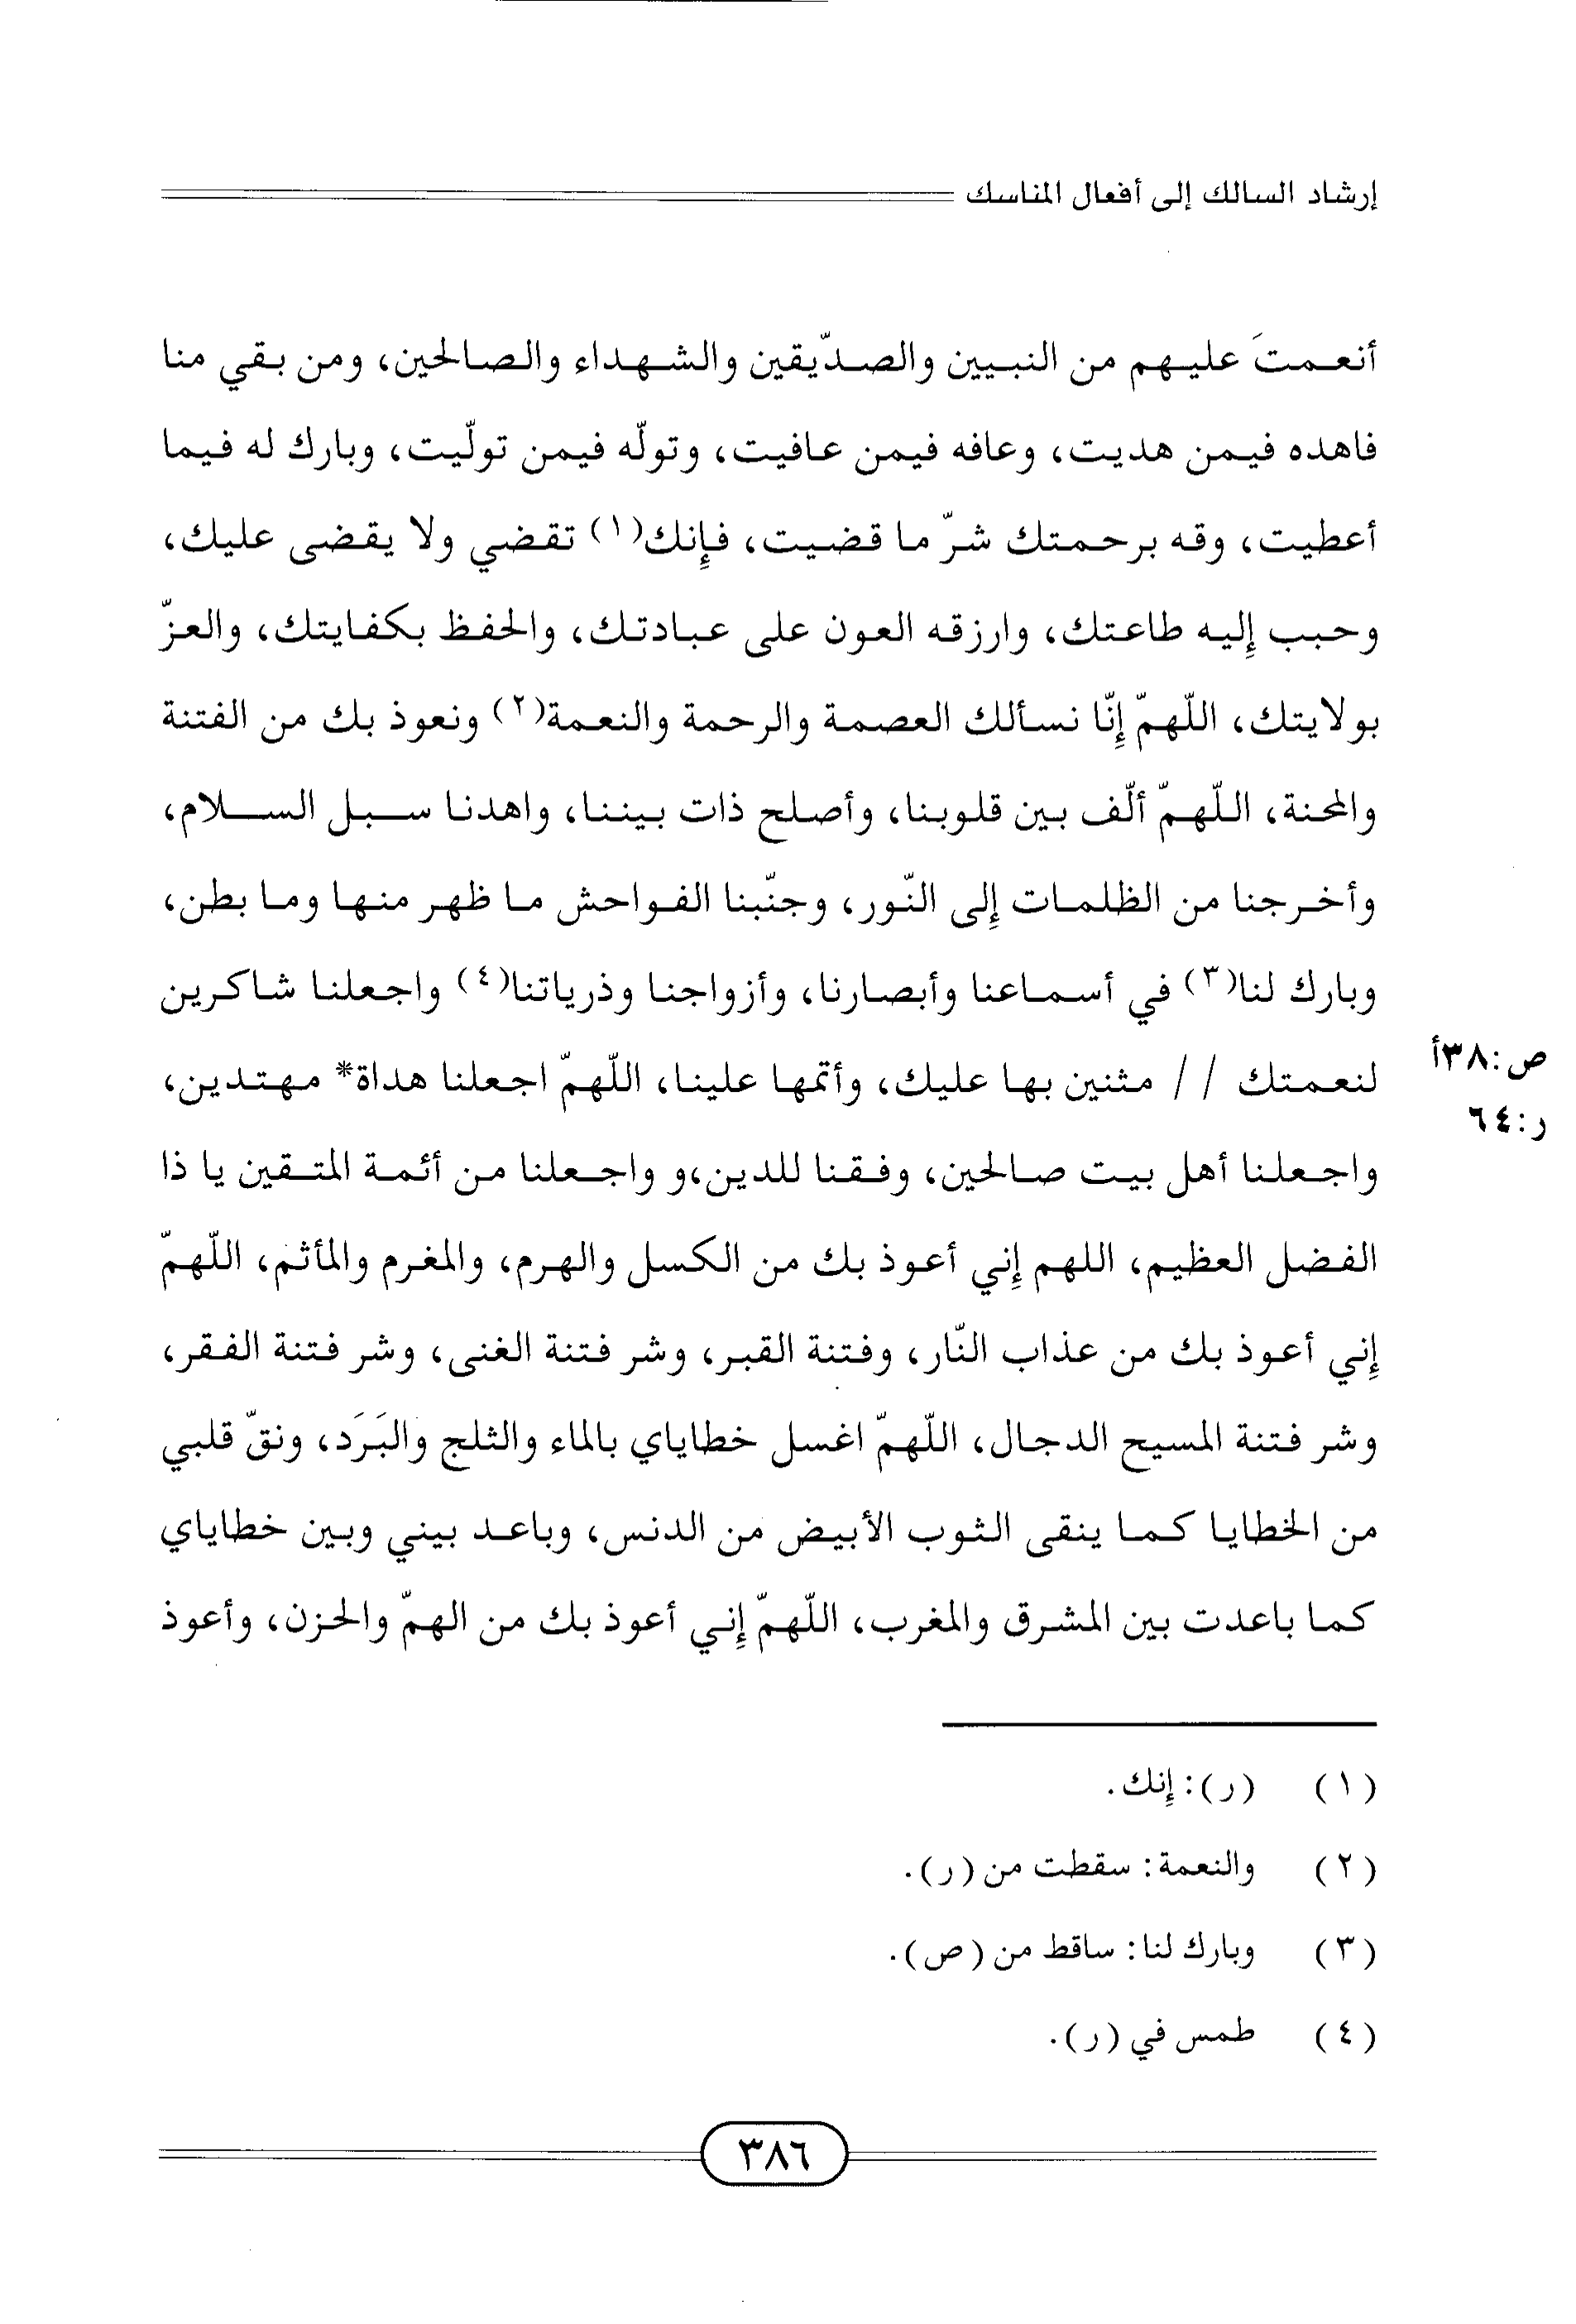 إرشاد السالك إلى أفعال المناسك
أنعمتَ عليهم من النبيين والصدّيقين والشهداء والصالحين، ومن بقي منا
فاهده فيمن هديت، وعافه فيمن عافيت، وتولّه فيمن تولّيت، وبارك له فيما
أعطيت، وقه برحمتك شرّ ما قضيت، فإنك(١) تقضي ولا يقضى عليك،
وحبب إليه طاعتك، وارزقه العون على عبادتك، والحفظ بكفايتك، والعزّ
بولايتك، اللّهمّ إنّا نسألك العصمة والرحمة والنعمة(٢) ونعوذ بك من الفتنة
والمحنة، اللّهمّ ألّف بين قلوبنا، وأصلح ذات بيننا، واهدنا سبل السلام،
وأخرجنا من الظلمات إلى النّور، وجنّبنا الفواحش ما ظهر منها وما بطن،
وبارك لنا(٣) في أسماعنا وأبصارنا، وأزواجنا وذرياتنا(٤) واجعلنا شاكرين
لنعمتك // مثنين بها عليك، وأتمها علينا، اللّهمّ اجعلنا هداة* مهتدين،
ص:٣٨أ
ر:٦٤
واجعلنا أهل بيت صالحين، وفقنا للدين،و واجعلنا من أئمة المتقين يا ذا
الفضل العظيم، اللهم إني أعوذ بك من الكسل والهرم، والمغرم والمأثم، اللّهمّ
إني أعوذ بك من عذاب النّار، وفتنة القبر، وشر فتنة الغنى، وشر فتنة الفقر،
وشر فتنة المسيح الدجال، اللّهمّ اغسل خطاياي بالماء والثلج والبَرَد، ونقّ قلبي
من الخطايا كما ينقى الثوب الأبيض من الدنس، وباعد بيني وبين خطاياي
كما باعدت بين المشرق والمغرب، اللّهمّ إني أعوذ بك من الهمّ والحزن، وأعوذ
(١) (ر): إنك.
(٢) والنعمة: سقطت من (ر).
(٣) وبارك لنا: ساقط من (ص).
(٤) طمس في (ر).
٣٨٦